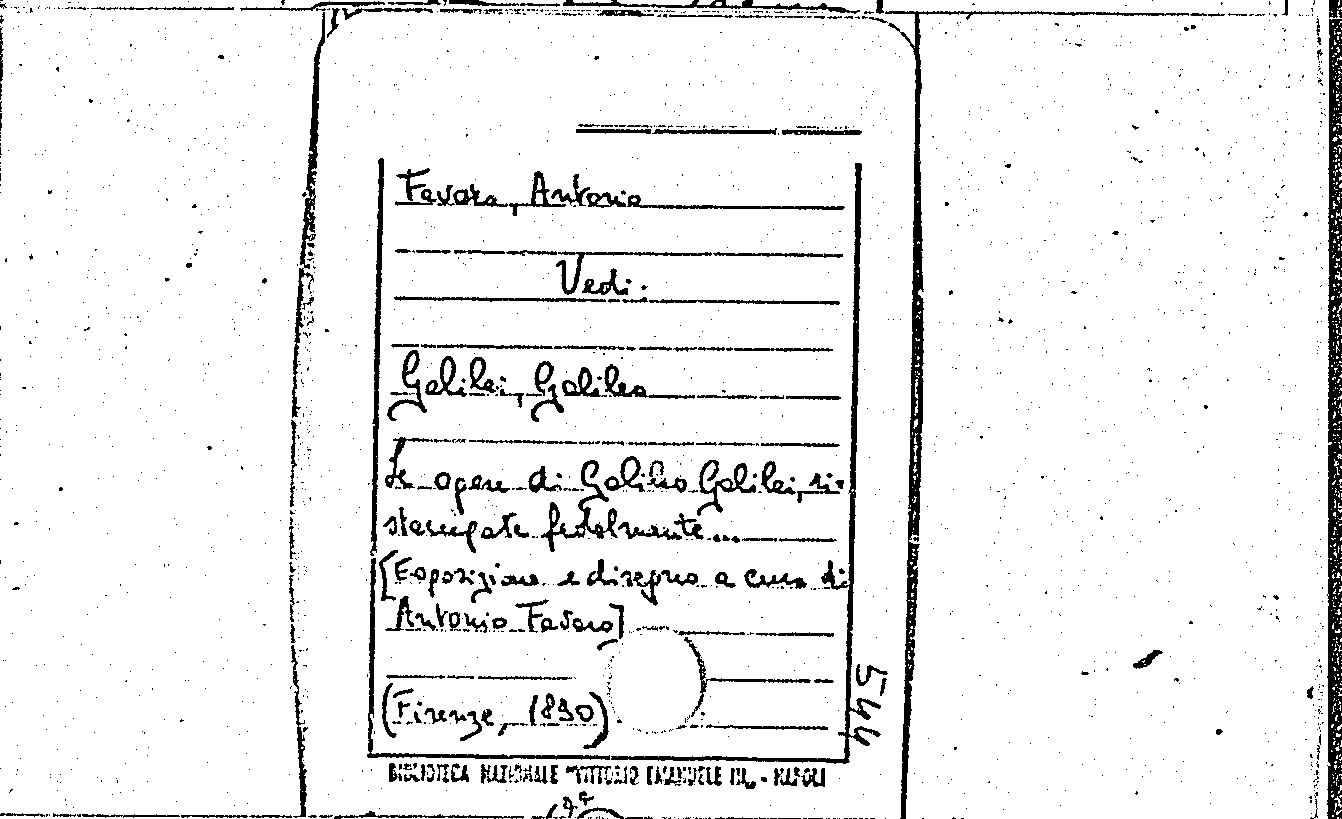 Favaro, Antonio
Vedi:
Galilei, Galileo
Le opere di Galileo Galilei, ri-
stampate fedelmente...
[Esposizione e disegno a cura di
Antonio Favaro]
(Firenze, 1890)
544
BIBLIOTECA NAZIONALE "VITTORIO EMANUELE III" - NAPOLI